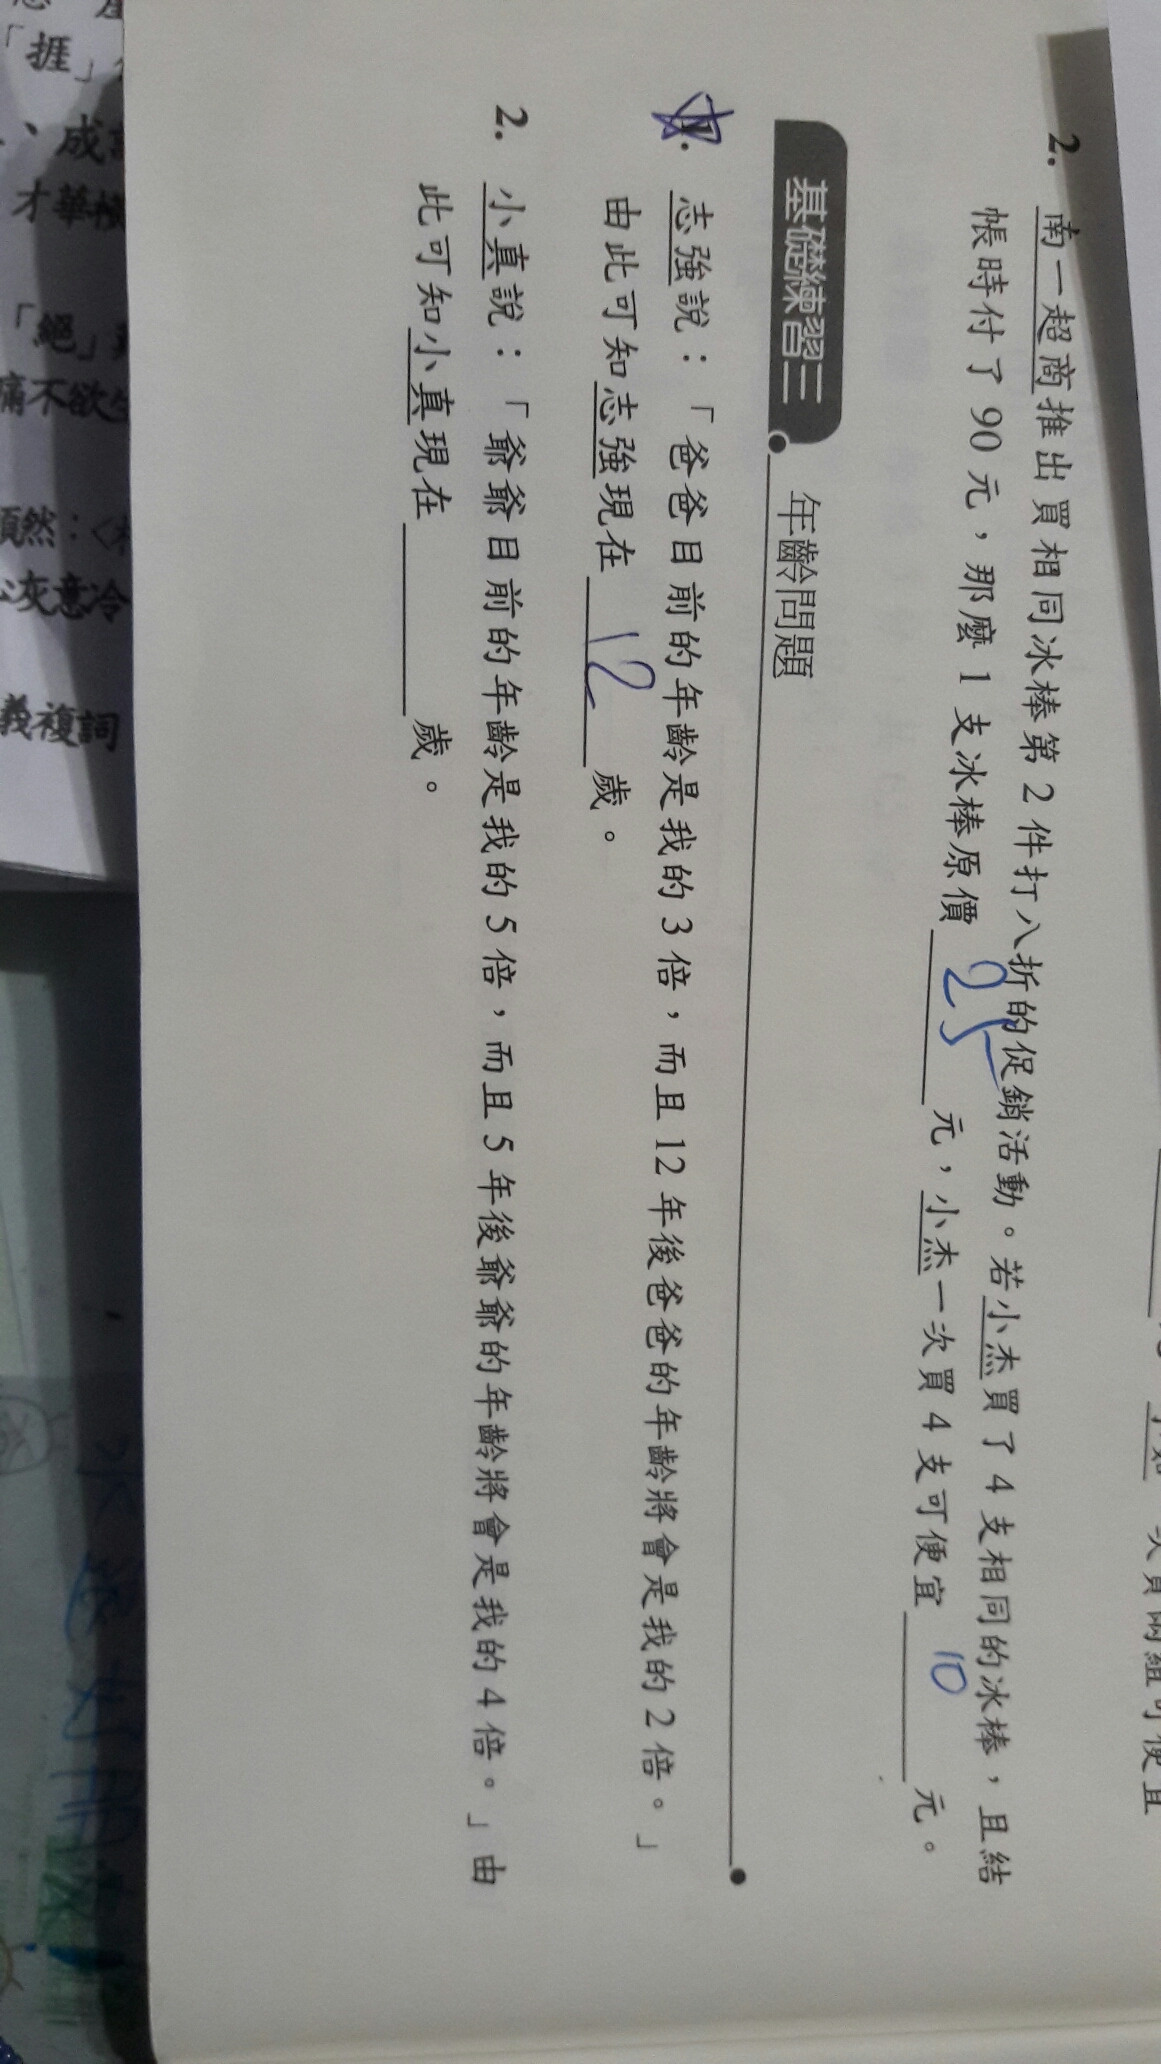 2. 南一超商推出買相同冰棒第2件打八折的促銷活動。若小杰買了4支相同的冰棒，且結
帳時付了90元，那麼1支冰棒原價 25 元，小杰一次買4支可便宜 10 元。
基礎練習三 年齡問題
1. 志強說：「爸爸目前的年齡是我的3倍，而且12年後爸爸的年齡將會是我的2倍。」
由此可知志強現在 12 歲。
2. 小真說：「爺爺目前的年齡是我的5倍，而且5年後爺爺的年齡將會是我的4倍。」由
此可知小真現在 歲。
「捱」
、成
才華橫
「絕」
痛不欲生
頹然：
心灰意冷
義複詞